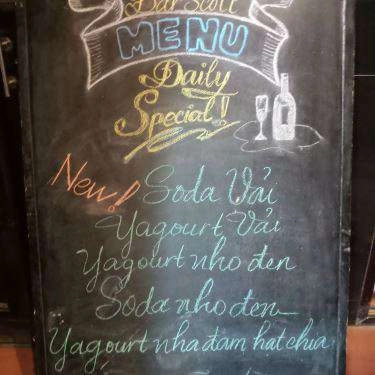 Bar Scott
MENU
Daily
Special!
New! Soda Vải
Yagourt Vải
Yagourt nho đen
Soda nho đen
Yagourt nha đam hat chia